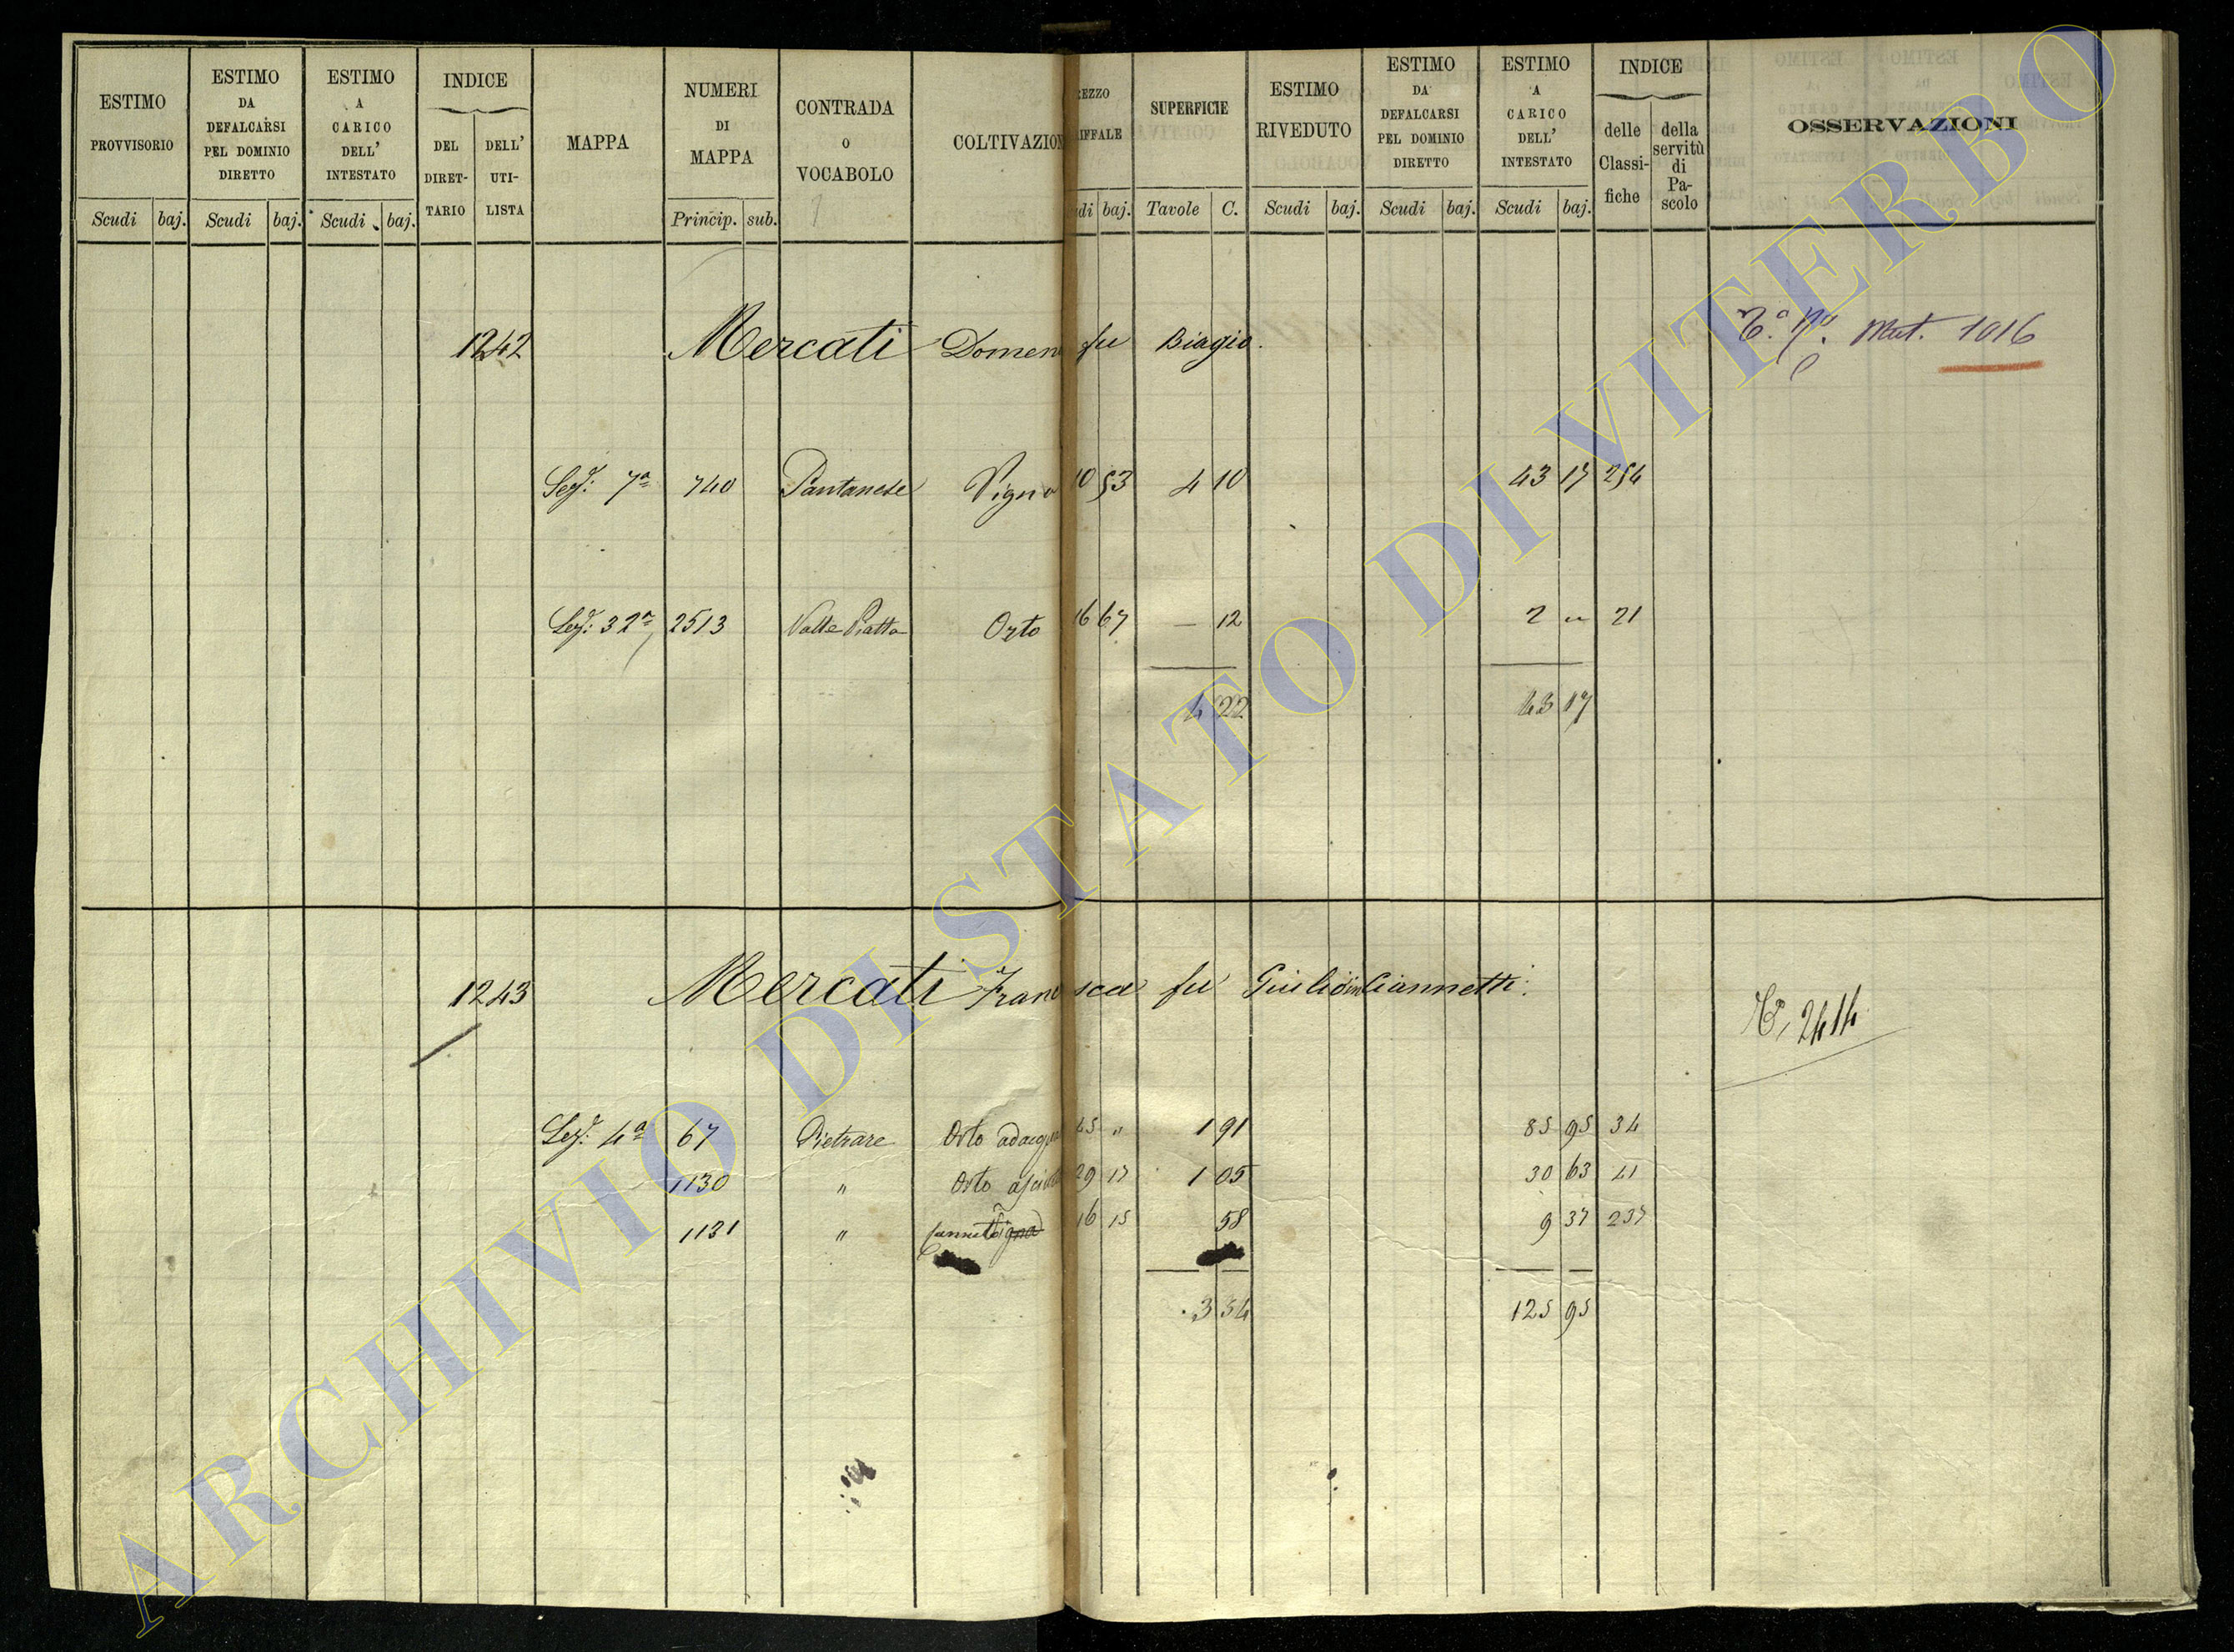 ESTIMO PROVVISORIO
Scudi baj.
ESTIMO DA DEFALCARSI PEL DOMINIO DIRETTO
Scudi baj.
ESTIMO A CARICO DELL' INTESTATO
Scudi baj.
INDICE
DEL DIRET-TARIO
DELL' UTI-LISTA
MAPPA
NUMERI DI MAPPA
Princip. sub.
CONTRADA O VOCABOLO
COLTIVAZION
REZZO IFFALE
udi baj.
SUPERFICIE
Tavole C.
ESTIMO RIVEDUTO
Scudi baj.
ESTIMO DA DEFALCARSI PEL DOMINIO DIRETTO
Scudi baj.
ESTIMO A CARICO DELL' INTESTATO
Scudi baj.
INDICE
delle Classi-fiche
della servitù di Pa-scolo
OSSERVAZIONI
1242 Mercati Domen fu Biagio. Mut. 1016
Sez: 7a 740 Pantanese Vigna 10 53 4 10 43 17 254
Sez: 32a 2513 Valle Piatta Orto 16 67 — 12 2 " 21
4 22 43 17
1243 Mercati Francesca fu Giulio in Giannetti.
2414
Sez: 4a 67 Pietrare Orto adacqua 45 " 1 91 85 95 34
1130 " Orto asciutto 29 17 1 05 30 63 41
1131 " Canneto Vigna 16 15 58 9 37 237
3 54 125 95
ARCHIVIO DI STATO DI VITERBO